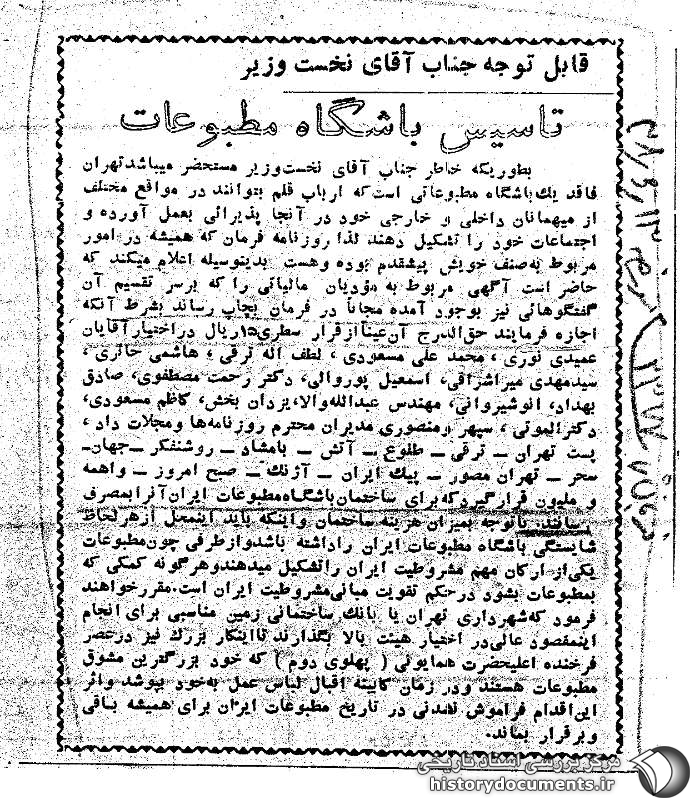 قابل توجه جناب آقای نخست وزیر
تاسیس باشگاه مطبوعات
بطوریکه خاطر جناب آقای نخست‌وزیر مستحضر میباشد تهران
فاقد یك باشگاه مطبوعاتی است که ارباب قلم بتوانند در مواقع مختلف
از میهمانان داخلی و خارجی خود در آنجا پذیرائی بعمل آورده و
اجتماعات خود را تشکیل دهند لذا روزنامه فرمان که همیشه در امور
مربوط به‌صنف خویش پیشقدم بوده وهست بدینوسیله اعلام میکند که
حاضر است آگهی مربوط به مؤدیان مالیاتی را که برسر تقسیم آن
گفتگوهائی نیز بوجود آمده مجاناً در فرمان بچاپ رساند بشرط آنکه
اجازه فرمایند حق‌الدرج آن‌عیناً از قرار سطری ۱۵ریال دراختیار آقایان
عمیدی نوری ، محمد علی مسعودی ، لطف اله ترقی ، هاشمی حائری ،
سیدمهدی میراشراقی، اسمعیل پوروالی، دکتر رحمت مصطفوی، صادق
بهداد، انوشیروانی، مهندس عبدالله‌والا، یزدان بخش، کاظم مسعودی،
دکترالموتی ، سپهر و منصوری مدیران محترم روزنامه‌ها ومجلات داد ،
پست تهران ــ ترقی ــ طلوع ــ آتش ــ بامشاد ــ روشنفکر ــ جهان‌ــ
سحر ــ تهران مصور ــ پیك ایران ــ آژنك ــ صبح امروز ــ واهمه
و ملیون قرارگیرد که برای ساختمان باشگاه مطبوعات ایران آنرا بمصرف
رسانند. با توجه بمیزان هزینه ساختمان واینکه باید اینمحل ازهرلحاظ
شایستگی باشگاه مطبوعات ایران راداشته باشد وازطرفی چون مطبوعات
یکی‌از ارکان مهم مشروطیت ایران راتشکیل میدهند وهرگونه کمکی که
بمطبوعات بشود درحکم تقویت مبانی مشروطیت ایران است. مقررخواهند
فرمود که شهرداری تهران یا بانك ساختمانی زمین مناسبی برای انجام
اینمقصود عالی در اختیار هیئت بالا بگذارند تا اینکار بزرك نیز درعصر
فرخنده اعلیحضرت همایونی ( پهلوی دوم ) که خود بزرگترین مشوق
مطبوعات هستند ودر زمان کابینه اقبال لباس عمل به‌خود بپوشد واثر
این‌اقدام فراموش نشدنی در تاریخ مطبوعات ایران برای همیشه بـاقی
وبرقرار بماند.
مرکز بررسی اسناد تاریخی
historydocuments.ir